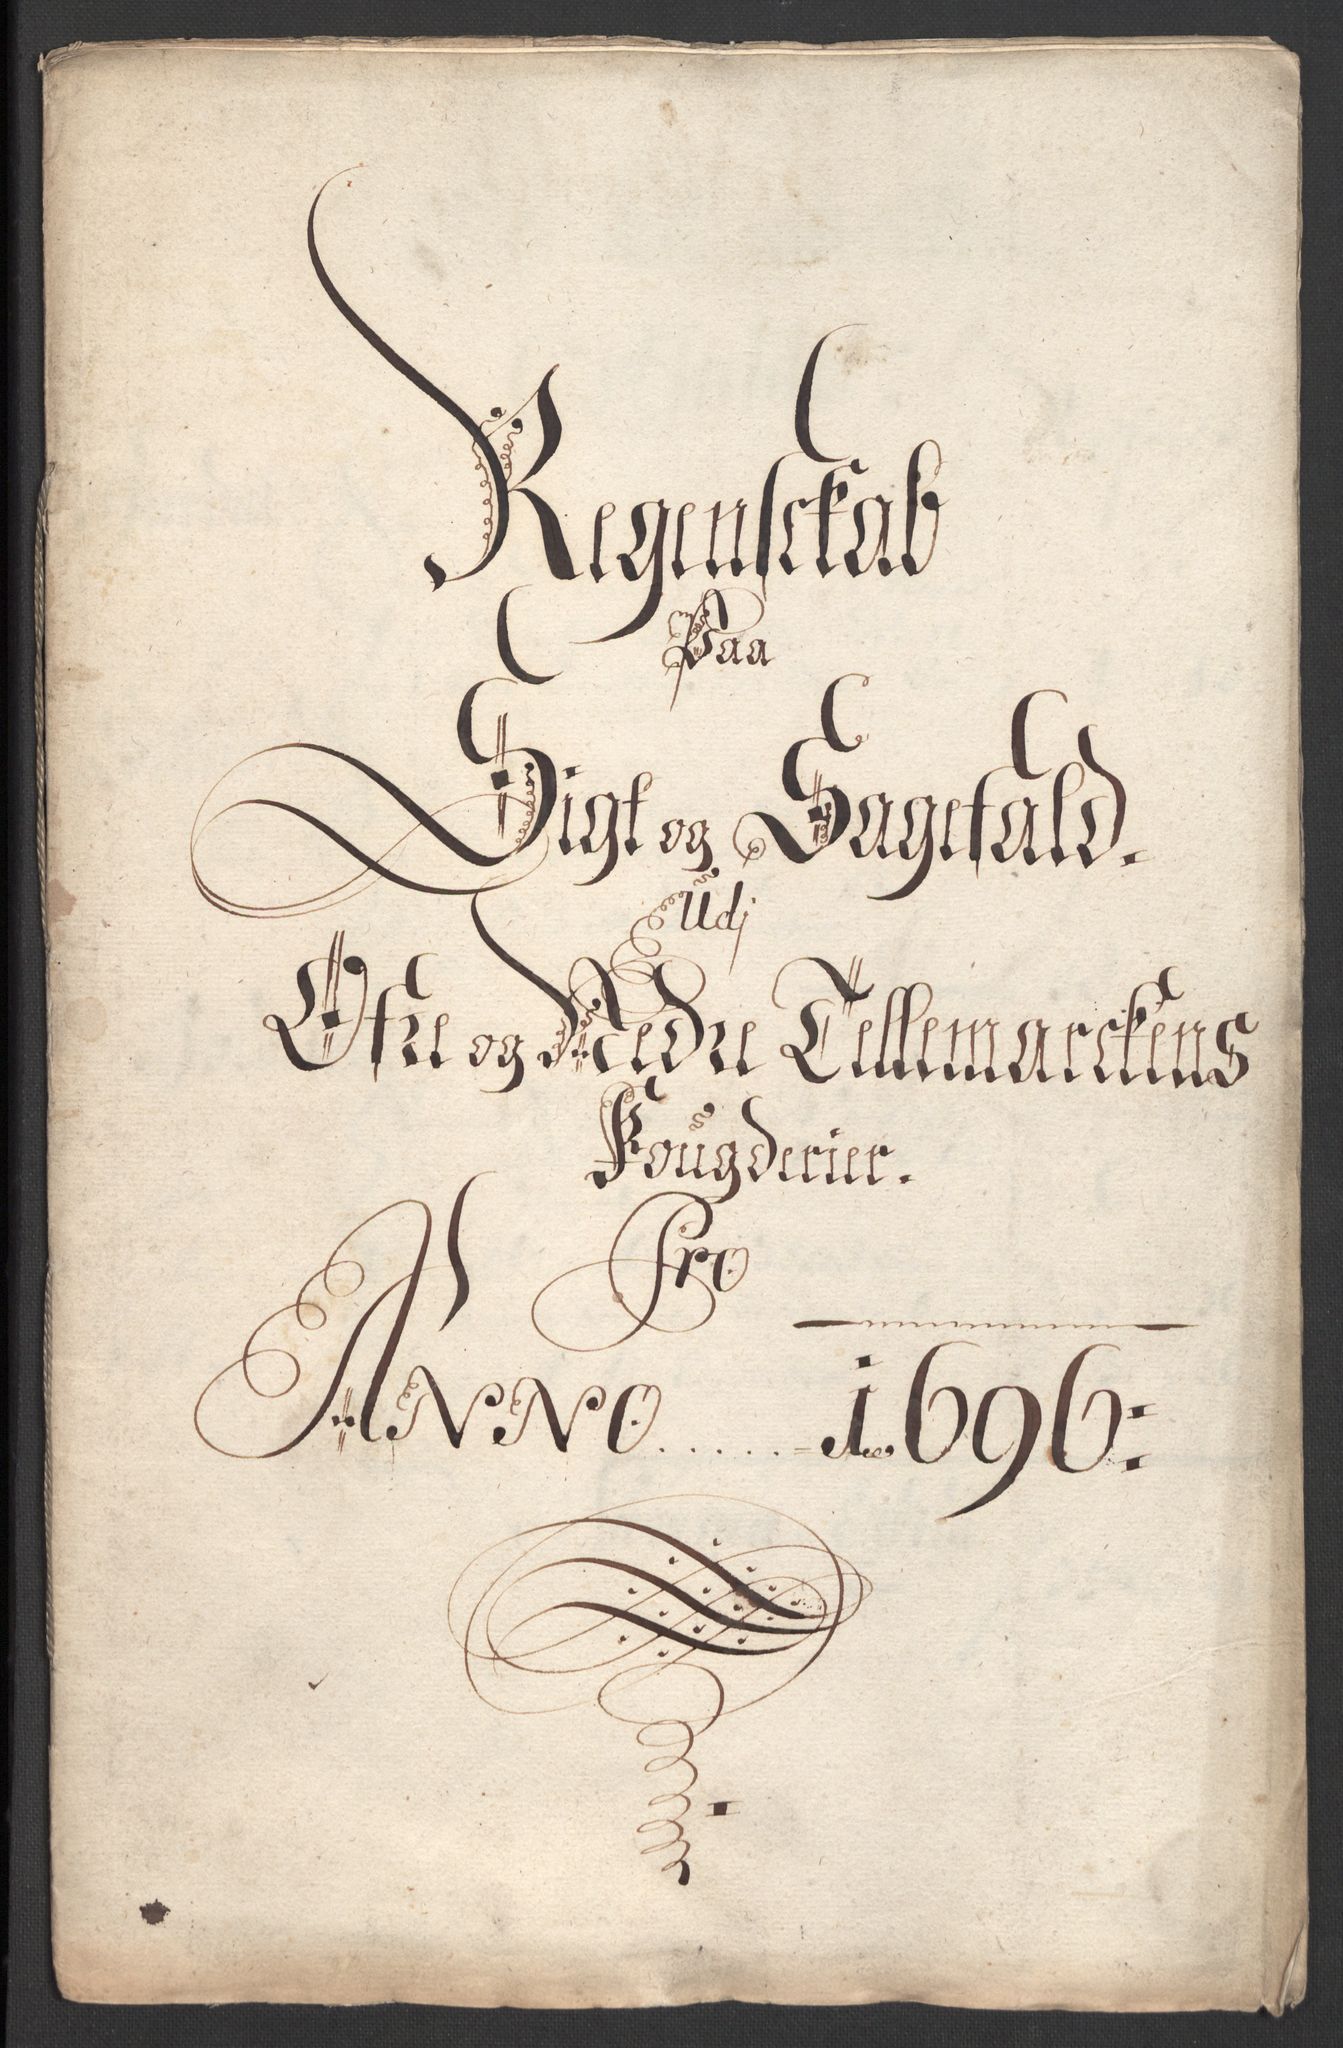 Regenskab
Paa
Sigt og Sagefald.
Udj
Øfre og Nedre Tellemarckens
Fougderier.
Pro
ANNO ...... 1696: